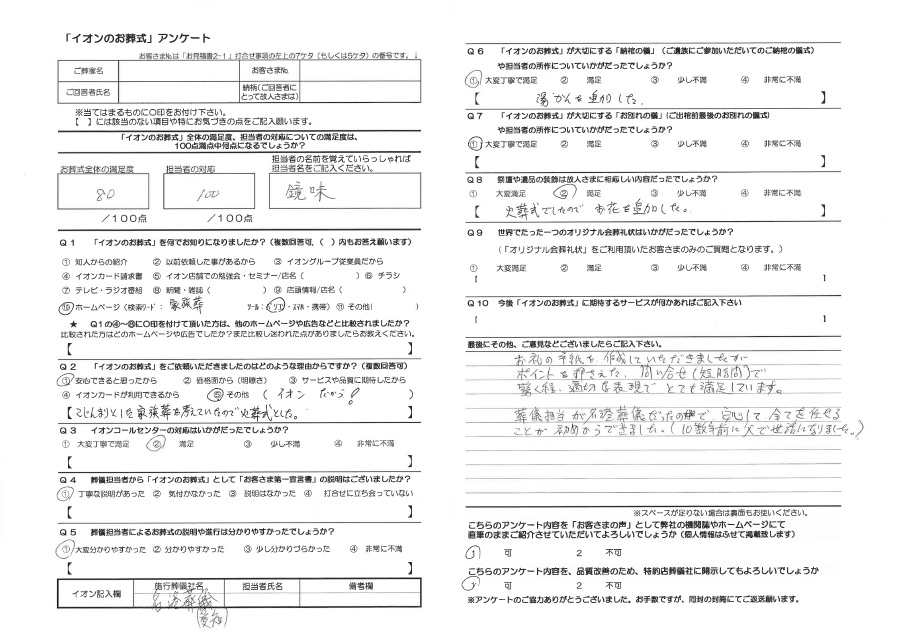 「イオンのお葬式」アンケート
お客さまNo.は「お見積書2-1」打合せ事項の左上の7ケタ(もしくは5ケタ)の番号です。↓
ご葬家名 お客さまNo.
ご回答者氏名 続柄(ご回答者にとって故人さまは)
※当てはまるものに○印をお付け下さい。
【 】には該当のない項目や特にお気づきの点をご記入願います。
「イオンのお葬式」全体の満足度、担当者の対応についての満足度は、
100点満点中何点になるでしょうか?
お葬式全体の満足度 担当者の対応 担当者の名前を覚えていらっしゃれば
担当者名をご記入ください。
80 100 鏡味
/100点 /100点
Q1 「イオンのお葬式」を何でお知りになりましたか?(複数回答可、( )内もお答え願います)
① 知人からの紹介 ② 以前依頼した事があるから ③ イオングループ従業員だから
④ イオンカード請求書 ⑤ イオン店舗での勉強会・セミナー/店名( ) ⑥ チラシ
⑦ テレビ・ラジオ番組 ⑧ 新聞・雑誌( ) ⑨ 店頭情報/店名( )
⑩ ホームページ(検索ワード: 家族葬 ツール:パソコン・スマホ・携帯) ⑪ その他( )
★ Q1の④~⑩に○印を付けて頂いた方は、他のホームページや広告などと比較されましたか?
比較された方はどのホームページや広告でしたか?また比較し迷われた点がありましたらお教えください。
【 】
Q2 「イオンのお葬式」をご依頼いただきましたのはどのような理由からですか?(複数回答可)
① 安心できると思ったから ② 価格面から(明瞭さ) ③ サービスや品質に期待したから
④ イオンカードが利用できるから ⑤ その他 ( イオン だから! )
【こじんまりとした家族葬を考えていたので火葬式とした。】
Q3 イオンコールセンターの対応はいかがだったでしょうか?
① 大変丁寧で満足 ② 満足 ③ 少し不満 ④ 非常に不満
【 】
Q4 葬儀担当者から「イオンのお葬式」として「お客さま第一宣言書」の説明はございましたか?
① 丁寧な説明があった ② 気付かなかった ③ 説明はなかった ④ 打合せに立ち会っていない
【 】
Q5 葬儀担当者によるお葬式の説明や進行は分かりやすかったでしょうか?
① 大変分かりやすかった ② 分かりやすかった ③ 少し分かりづらかった ④ 非常に不満
【 】
イオン記入欄 施行葬儀社名 担当者氏名 備考欄
名港葬儀
(愛知)
Q6 「イオンのお葬式」が大切にする「納棺の儀」(ご遺族にご参加いただいてのご納棺の儀式)
や担当者の所作についていかがだったでしょうか?
① 大変丁寧で満足 ② 満足 ③ 少し不満 ④ 非常に不満
【 湯かんを追加した。 】
Q7 「イオンのお葬式」が大切にする「お別れの儀」(ご出棺前最後のお別れの儀式)
や担当者の所作についていかがだったでしょうか?
① 大変丁寧で満足 ② 満足 ③ 少し不満 ④ 非常に不満
【 】
Q8 祭壇や遺品の装飾は故人さまに相応しい内容だったでしょうか?
① 大変満足 ② 満足 ③ 少し不満 ④ 非常に不満
【 火葬式でしたので お花を追加した。 】
Q9 世界でたった一つのオリジナル会葬礼状はいかがだったでしょうか?
(「オリジナル会葬礼状」をご利用頂いたお客さまのみのご質問となります。)
① 大変満足 ② 満足 ③ 少し不満 ④ 非常に不満
【 】
Q10 今後「イオンのお葬式」に期待するサービスが何かあればご記入下さい
【 】
最後にその他、ご意見などございましたらご記入下さい。
お礼の手紙を、作成していただきましたが
ポイントを押さえた、問い合せ(短時間)で
驚く程、適切な表現で とても満足しています。
葬儀担当が名港葬儀だったので、安心して全てを任せる
ことが初めからできました。(10数年前に父で世話になりました。)
※スペースが足りない場合は裏面もお使いください。
こちらのアンケート内容を「お客さまの声」として弊社の機関誌やホームページにて
直筆のままご紹介させていただいてよろしいでしょうか(個人情報はふせて掲載致します)
1 可 2 不可
こちらのアンケート内容を、品質改善のため、特約店葬儀社に開示してもよろしいでしょうか
1 可 2 不可
※アンケートのご協力ありがとうございました。お手数ですが、同封の封筒にてご返送願います。